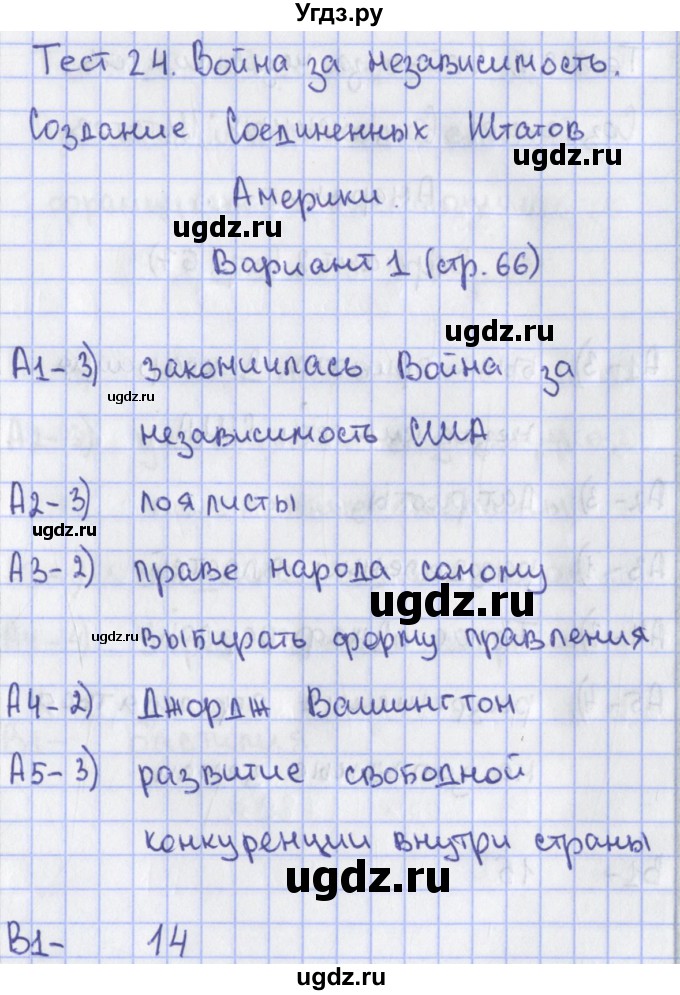 Угдз.ру
Тест 24. Война за независимость.
Создание Соединенных Штатов
ugdz.ru
Америки.
ugdz.ru
Вариант 1 (стр. 66)
ugdz.ru
А1- 3) закончилась Война за
ugdz.ru
независимость США
А2- 3) лоялисты
ugdz.ru
А3- 2) праве народа самому
ugdz.ru
ugdz.ru выбирать форму правления
А4- 2) Джордж Вашингтон
ugdz.ru
А5- 3) развитие свободной
ugdz.ru
конкуренции внутри страны
ugdz.ru
В1- 14
ugdz.ru